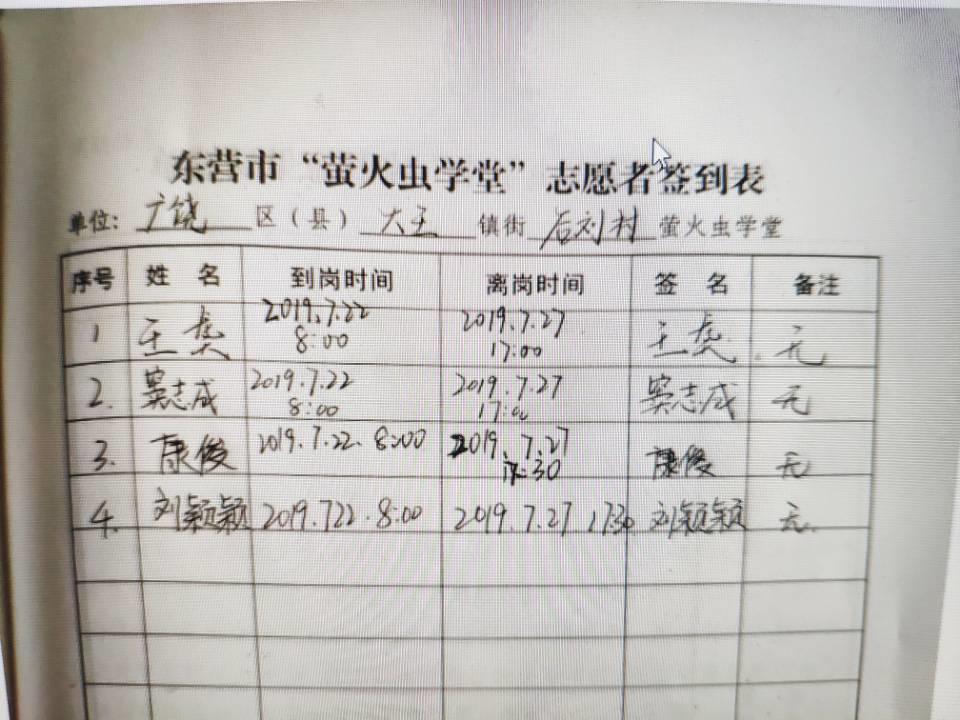 东营市“萤火虫学堂”志愿者签到表
单位: 广饶 区(县) 大王 镇街 后刘村 萤火虫学堂
序号 姓名 到岗时间 离岗时间 签名 备注
1 王 2019.7.22 8:00 2019.7.27 17:00 王 无
2. 窦志成 2019.7.22 8:00 2019.7.27 17:00 窦志成 无
3. 康俊 2019.7.22. 8:00 2019.7.27 17:30 康俊 无
4. 刘颖颖 2019.722.8:00 2019.7.27 1730 刘颖颖 无.